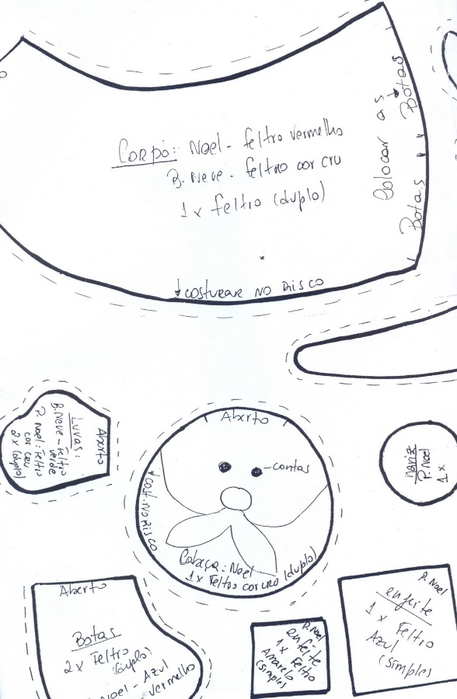 Corpo: Noel - feltro vermelho
B. neve - feltro cor cru
1x feltro (duplo)
Colocar as Botas
Botas
costurar no risco
Aberto
Luvas:
B. neve - Feltro
verde
P. Noel: Feltro
cor cru
2x (duplo)
Aberto
contas
cost. no risco
Cabeça: Noel
1x Feltro cor cru (duplo)
Nariz
P. Noel
1x
Aberto
Botas
2x Feltro
(duplo)
Noel - Azul
vermelho
P. Noel
enfeite
1x Feltro
Amarelo
(simples)
P. Noel
enfeite
1x Feltro
Azul
(simples)